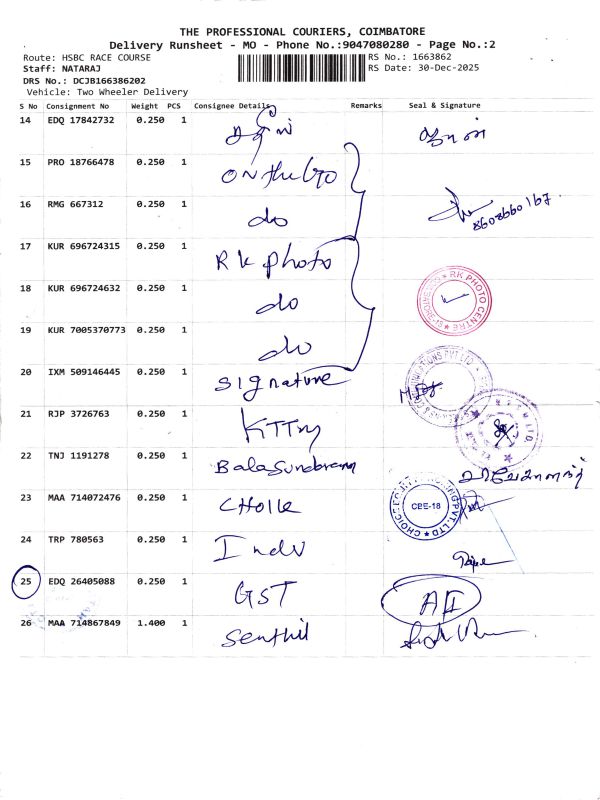 THE PROFESSIONAL COURIERS, COIMBATORE
Delivery Runsheet - MO - Phone No.:9047080280 - Page No.:2
Route: HSBC RACE COURSE
RS No.: 1663862
Staff: NATARAJ
RS Date: 30-Dec-2025
DRS No.: DCJB166386202
Vehicle: Two Wheeler Delivery
S No Consignment No Weight PCS Consignee Details Remarks Seal & Signature
14 EDQ 17842732 0.250 1
15 PRO 18766478 0.250 1 ON the Go
16 RMG 667312 0.250 1 do
8608660167
17 KUR 696724315 0.250 1 RK photo
18 KUR 696724632 0.250 1 do
RK PHOTO CENTRE
19 KUR 7005370773 0.250 1 do
20 IXM 509146445 0.250 1 signature
21 RJP 3726763 0.250 1 KTTM
22 TNJ 1191278 0.250 1 Balasundaram
23 MAA 714072476 0.250 1 CHOICE
CBE-18
24 TRP 780563 0.250 1 Indu
25 EDQ 26405088 0.250 1 GST
26 MAA 714867849 1.400 1 Senthil